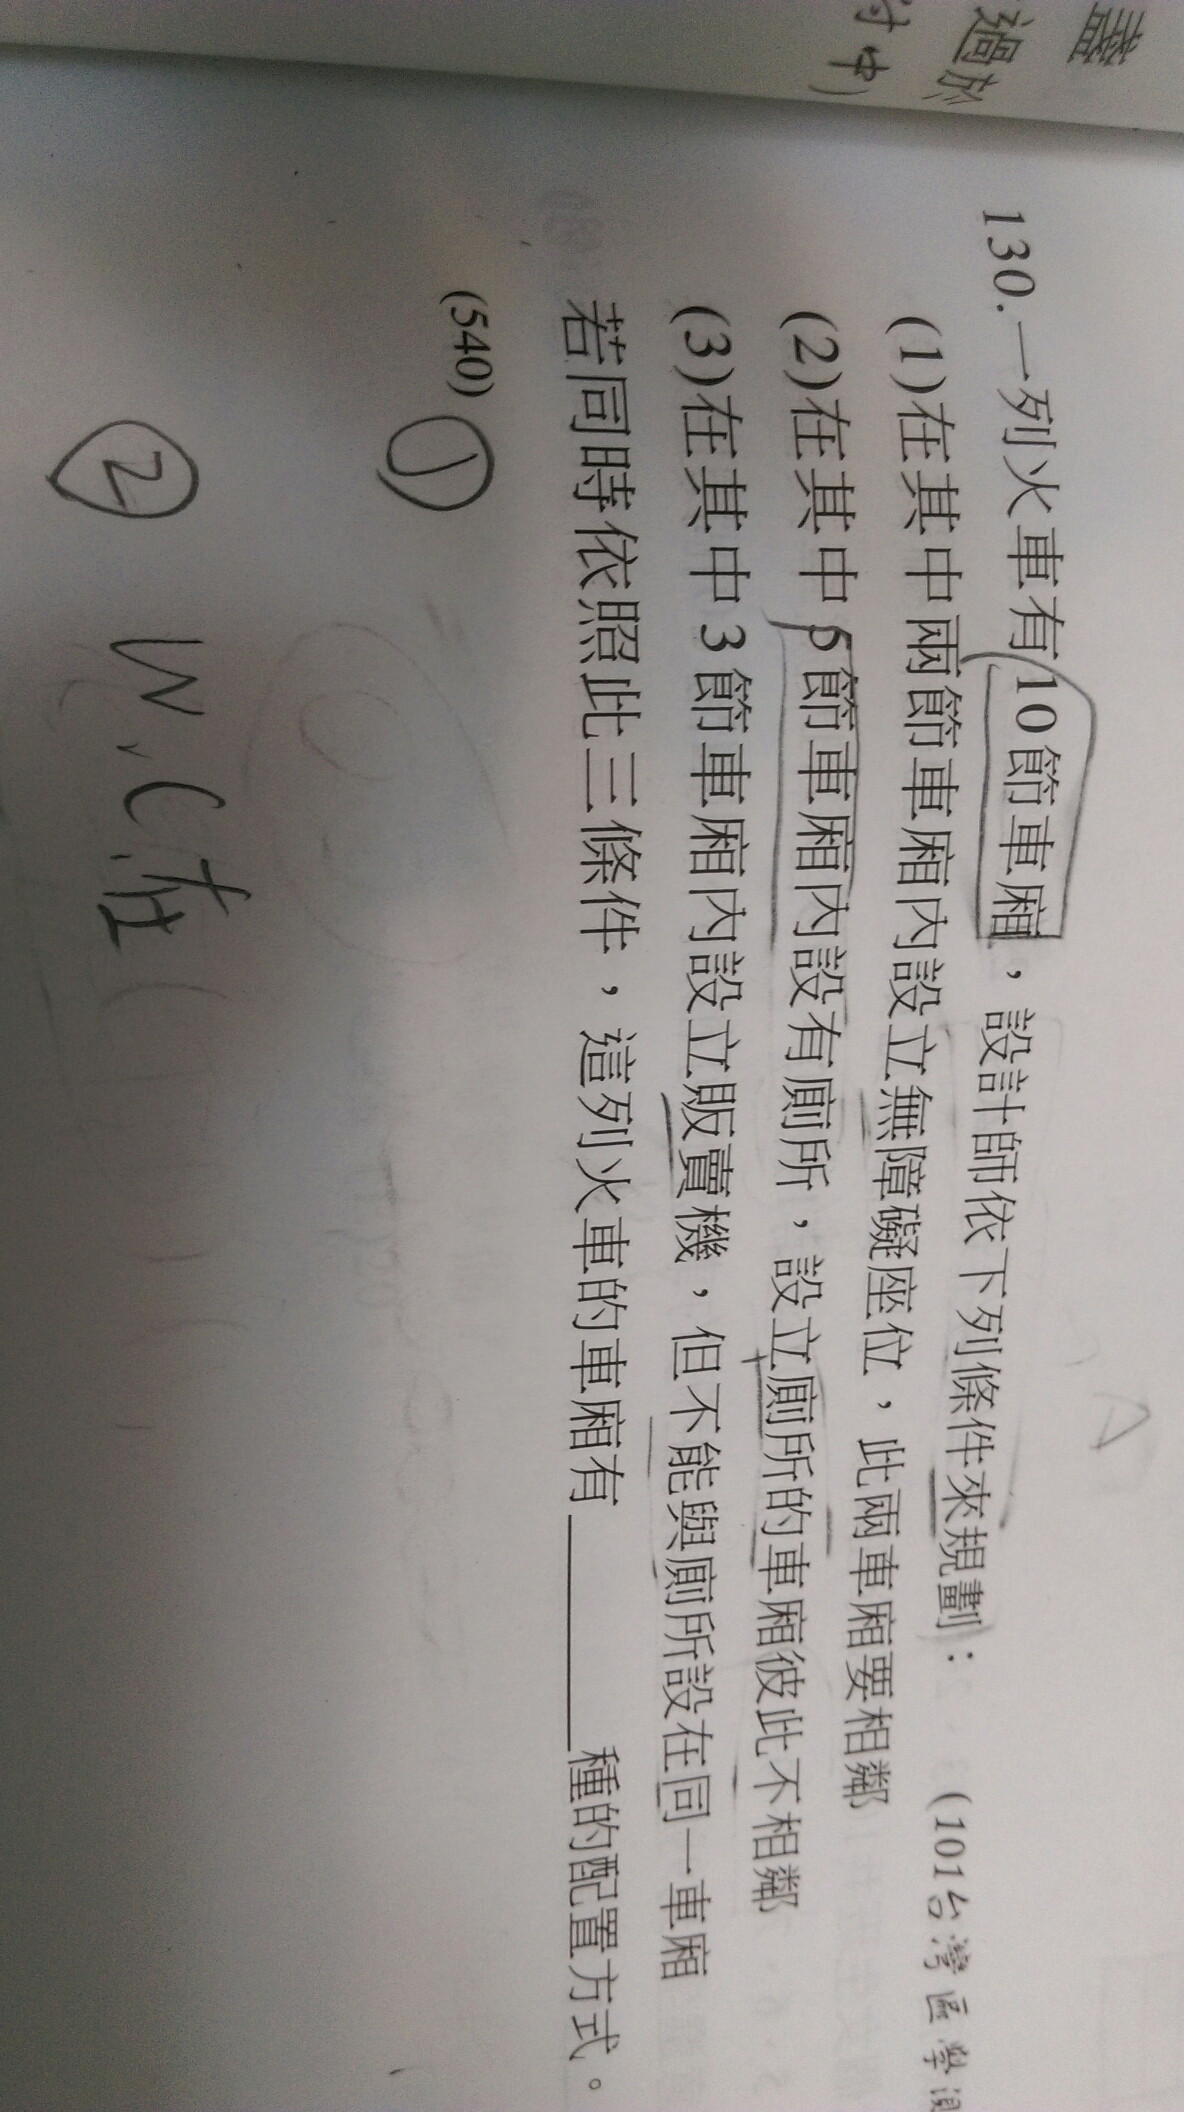 蓋
過於
討中)
130.一列火車有10節車廂，設計師依下列條件來規劃： (101台灣區學測
(1)在其中兩節車廂內設立無障礙座位，此兩車廂要相鄰
(2)在其中5節車廂內設有廁所，設立廁所的車廂彼此不相鄰
(3)在其中3節車廂內設立販賣機，但不能與廁所設在同一車廂
若同時依照此三條件，這列火車的車廂有______種的配置方式。
(540) ①
② W.C在